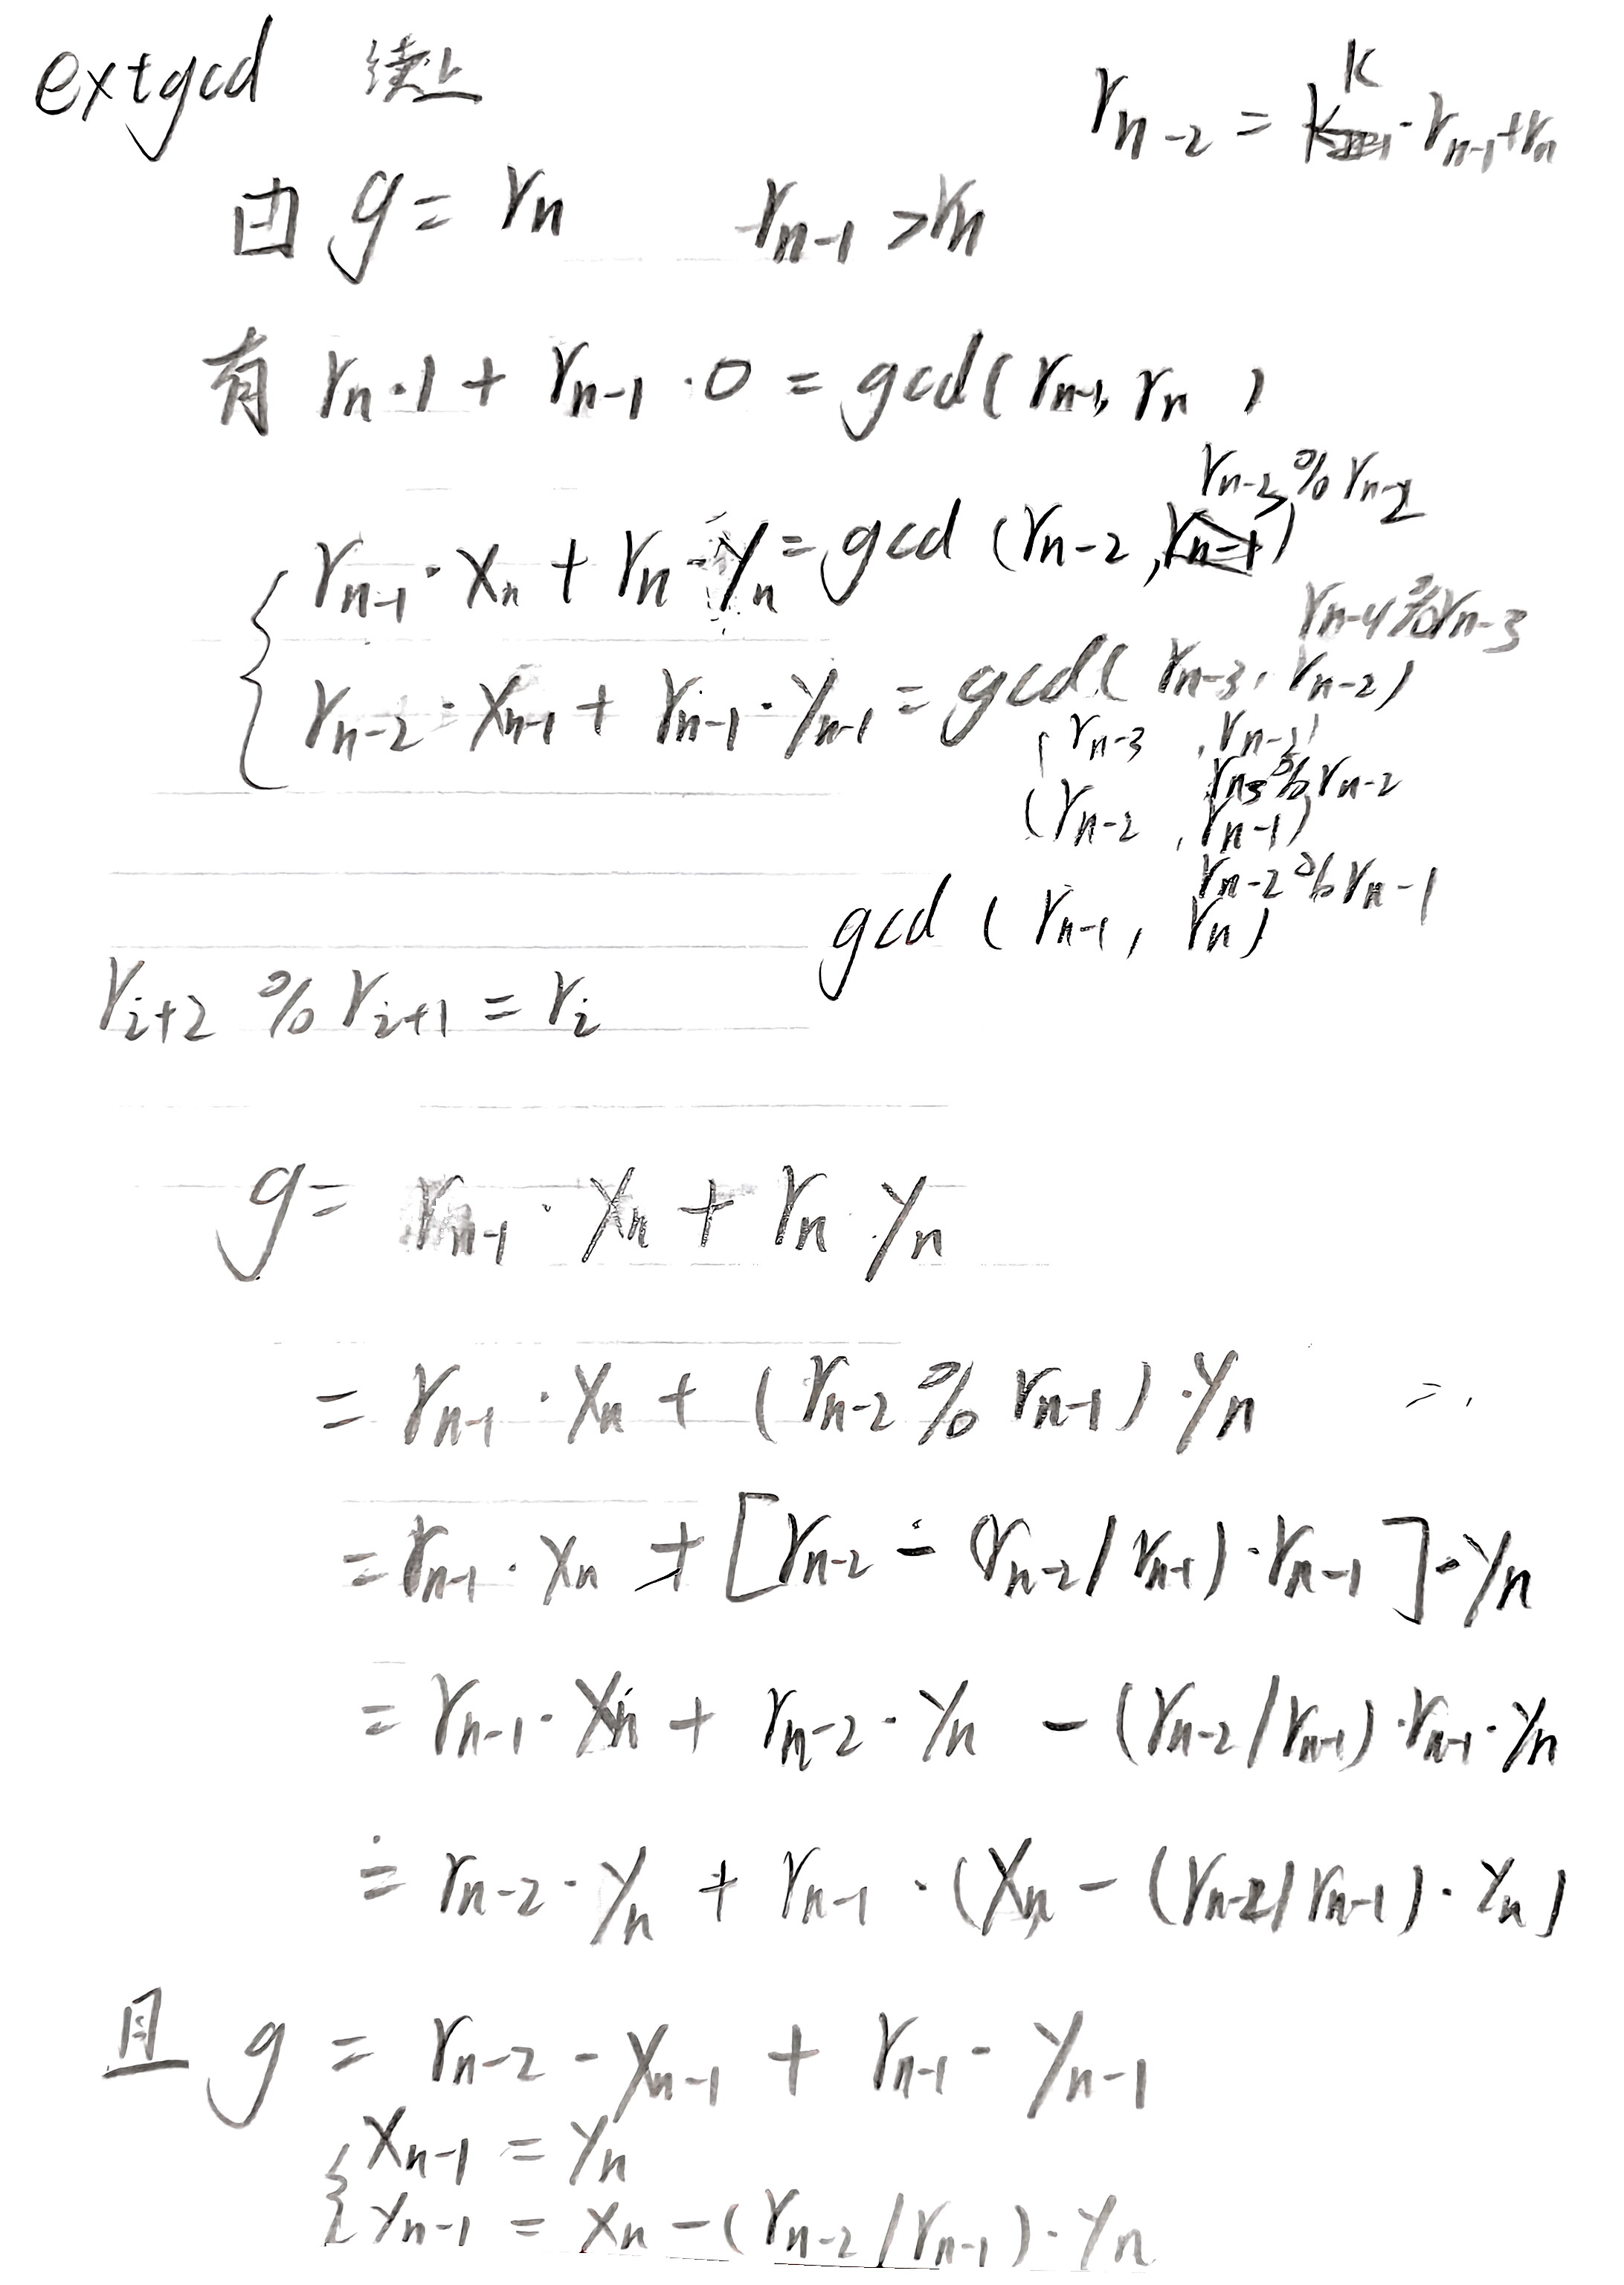 extgcd 续上
r_{n-2} = k · r_{n-1} + r_n
由 g = r_n r_{n-1} > r_n
有 r_n · 1 + r_{n-1} · 0 = gcd( r_{n-1}, r_n )
r_{n-3} % r_{n-2}
{ r_{n-1} · x_n + r_n · y_n = gcd ( r_{n-2}, r_{n-1} )
r_{n-4} % r_{n-3}
r_{n-2} · x_{n-1} + r_{n-1} · y_{n-1} = gcd( r_{n-3}, r_{n-2} )
( r_{n-3} , r_{n-2} )
r_{n-3} % r_{n-2}
( r_{n-2} , r_{n-1} )
r_{n-2} % r_{n-1}
gcd ( r_{n-1}, r_n )
r_{i+2} % r_{i+1} = r_i
g = r_{n-1} · x_n + r_n · y_n
= r_{n-1} · x_n + ( r_{n-2} % r_{n-1} ) · y_n =
= r_{n-1} · x_n + [ r_{n-2} - ( r_{n-2} / r_{n-1} ) · r_{n-1} ] · y_n
= r_{n-1} · x_n + r_{n-2} · y_n - ( r_{n-2} / r_{n-1} ) · r_{n-1} · y_n
= r_{n-2} · y_n + r_{n-1} · ( x_n - ( r_{n-2} / r_{n-1} ) · y_n )
且 g = r_{n-2} · x_{n-1} + r_{n-1} · y_{n-1}
{ x_{n-1} = y_n
y_{n-1} = x_n - ( r_{n-2} / r_{n-1} ) · y_n